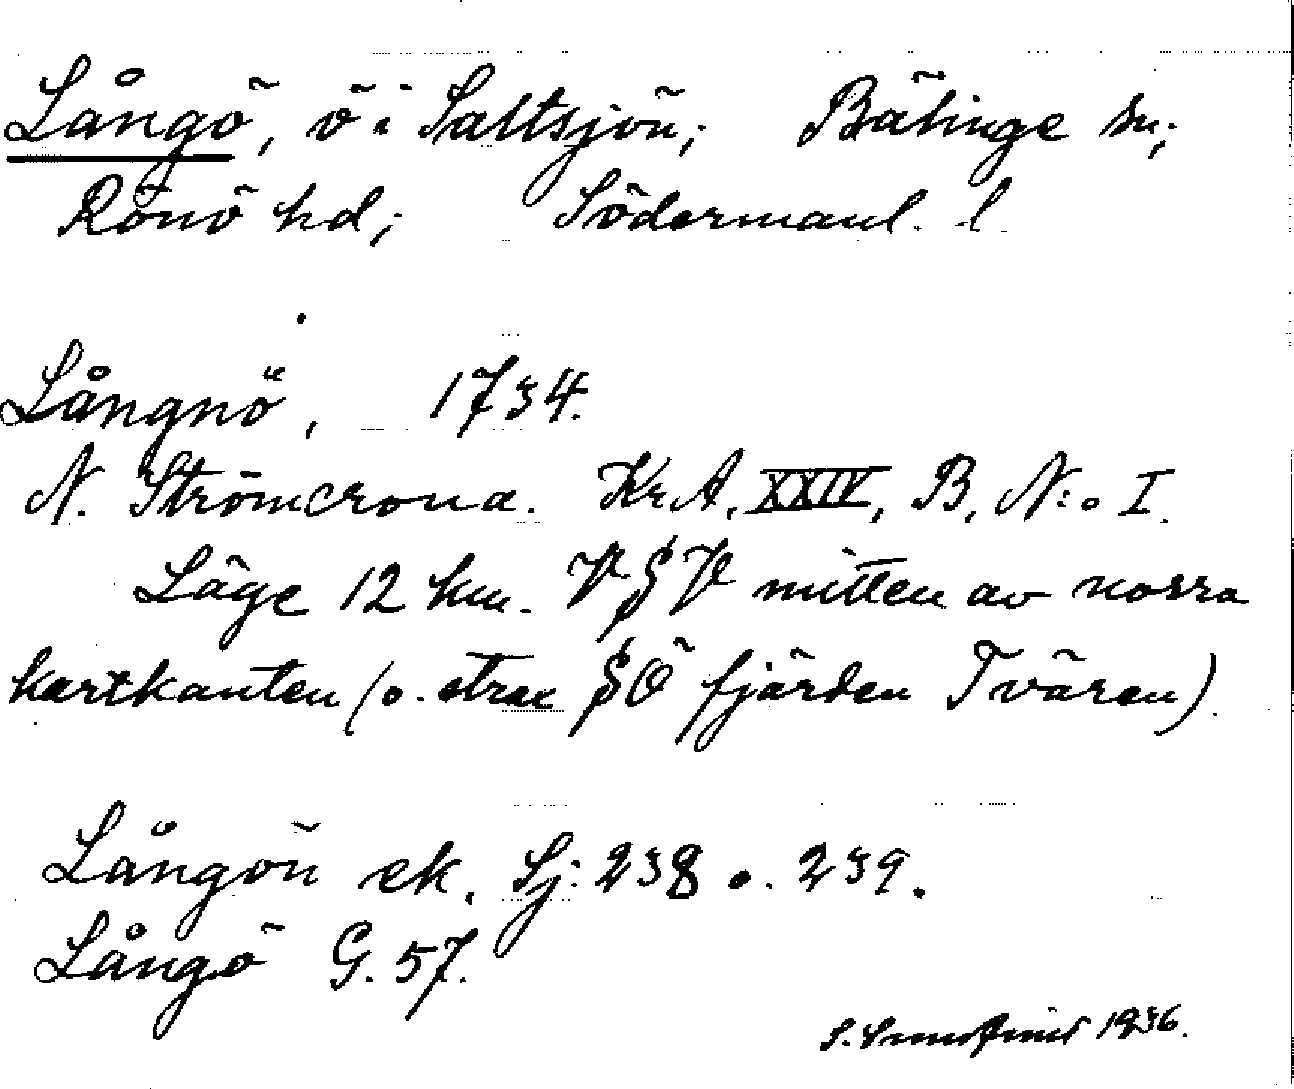 Långö, ö i Saltsjön; Bälinge sn;
Rönö hd; Södermanl. l
Långnö, 1734.
N. Strömcrona. Kr.A. XXIV, B, N:o I.
Läge 12 km. VSV mitten av norra
kartkanten (o. strax SÖ fjärden Tvären).
Långön ek. Sj: 238 o. 239.
Långö G. 57.
S. 1936.